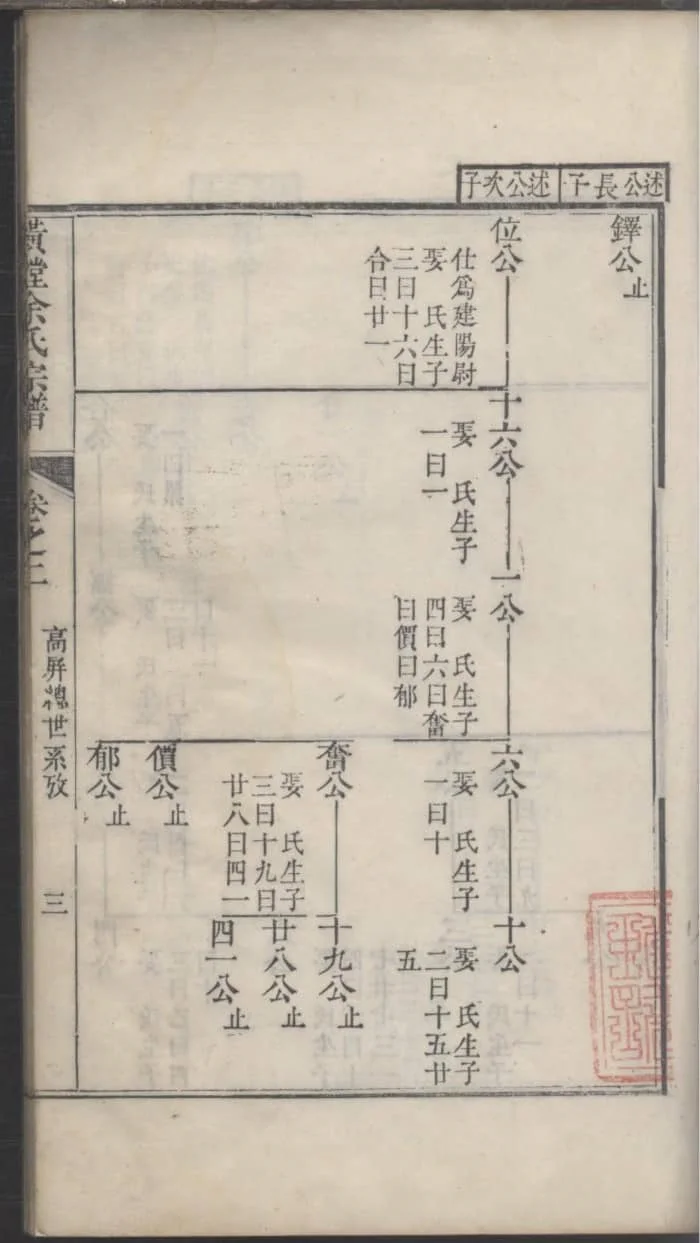 述公長子
述公次子
鐸公止
位公
仕爲建陽尉
娶　氏生子
三曰十六曰
合曰廿一
十六公
娶　氏生子
一曰一
一公
娶　氏生子
四曰六曰奮
曰價曰郁
六公
娶　氏生子
一曰十
十公
娶　氏生子
二曰十五廿
五
奮公
娶　氏生子
三曰十九曰
廿八曰四一
十九公止
廿八公止
四一公止
價公止
郁公止
黃塘余氏宗譜
卷之二
高屏總世系攷
三